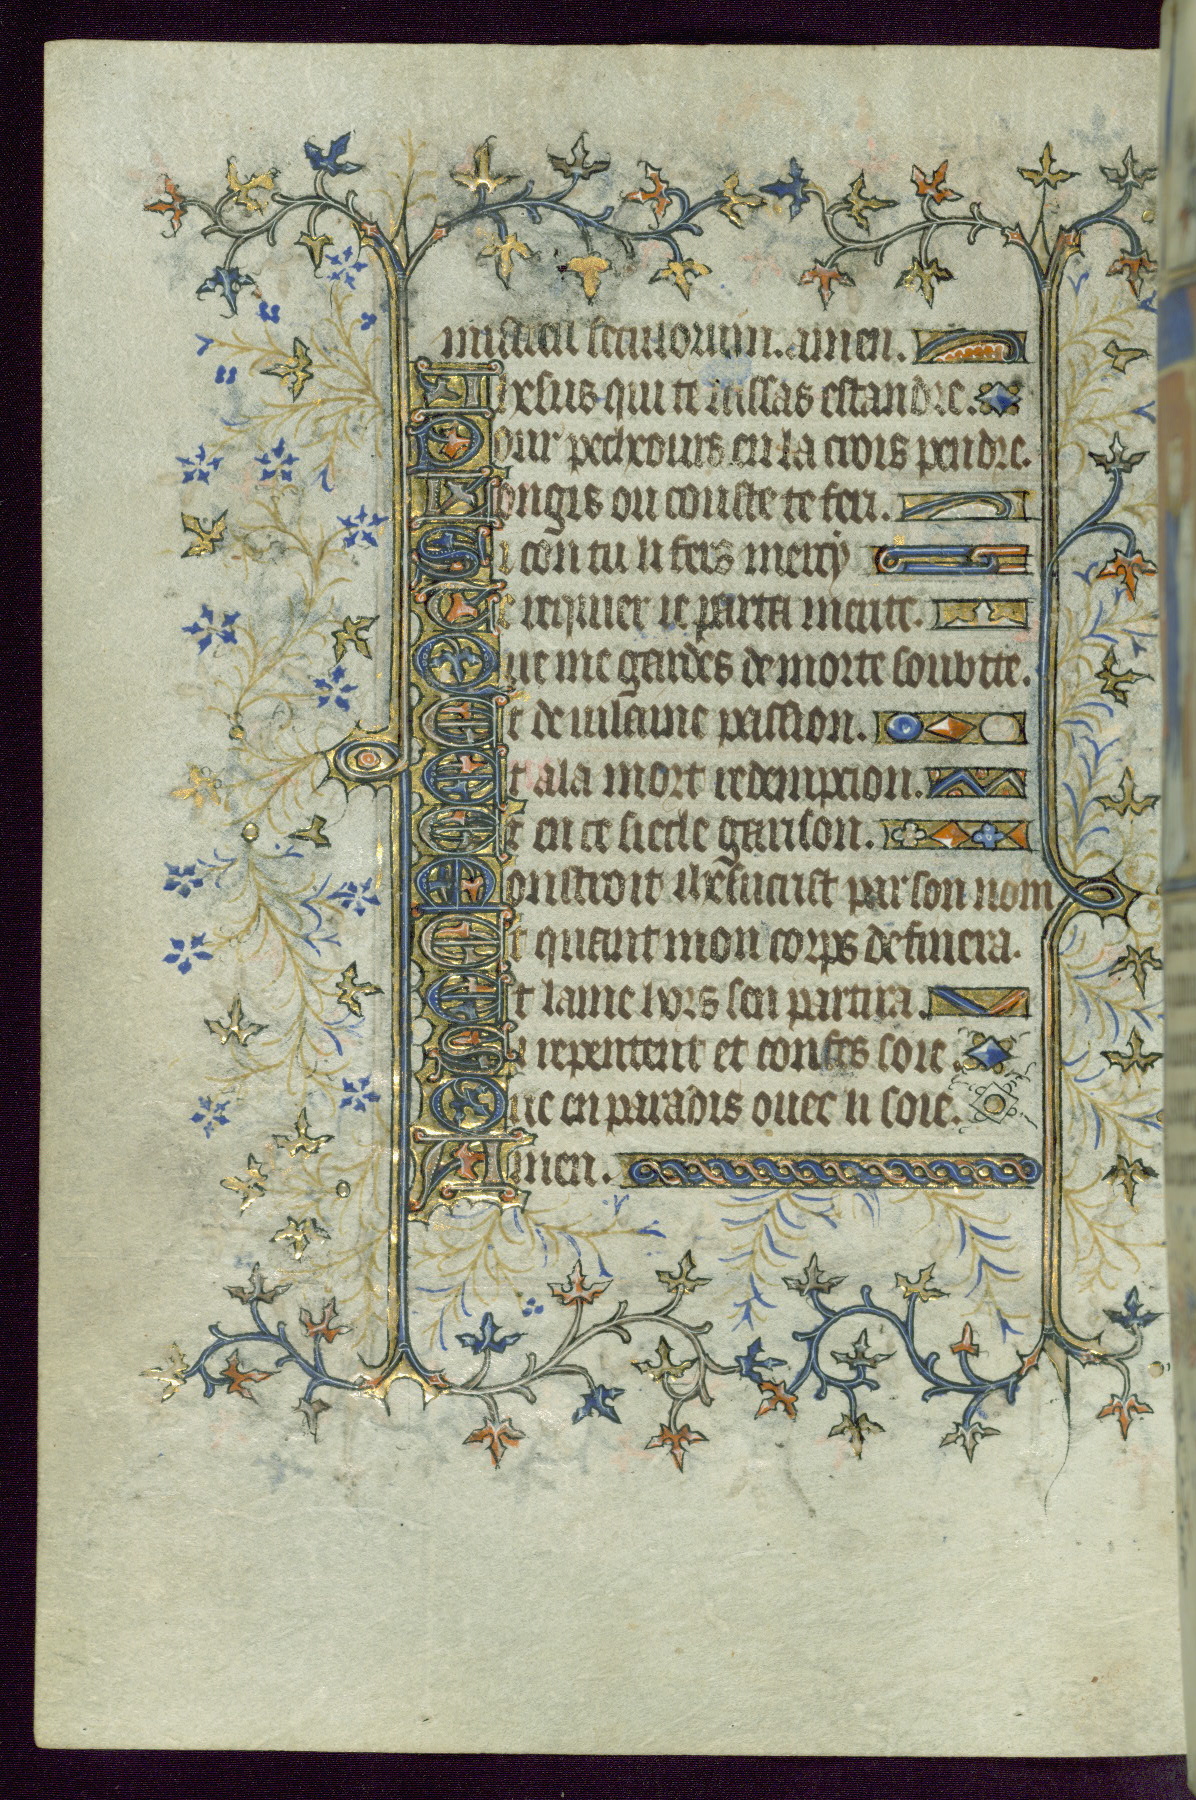 mitacii seculorum. amen.
Ihxsus qui te laissas estandre.
Pour pecheours en la crois pendre.
Longis ou couste te feri.
Si con tu li feis mercy
Te requier ie par ta mente.
Que me gardes de morte soubite.
Et de vilaine passion.
Et a la mort redempcion.
Et en ce siecle garison.
Monstroit ihxsucrist par son nom
Et quant mon corps definera.
Et lame hors sen partira.
Si repentent et confes soie
Que en paradis ovec li soie.
Amen.